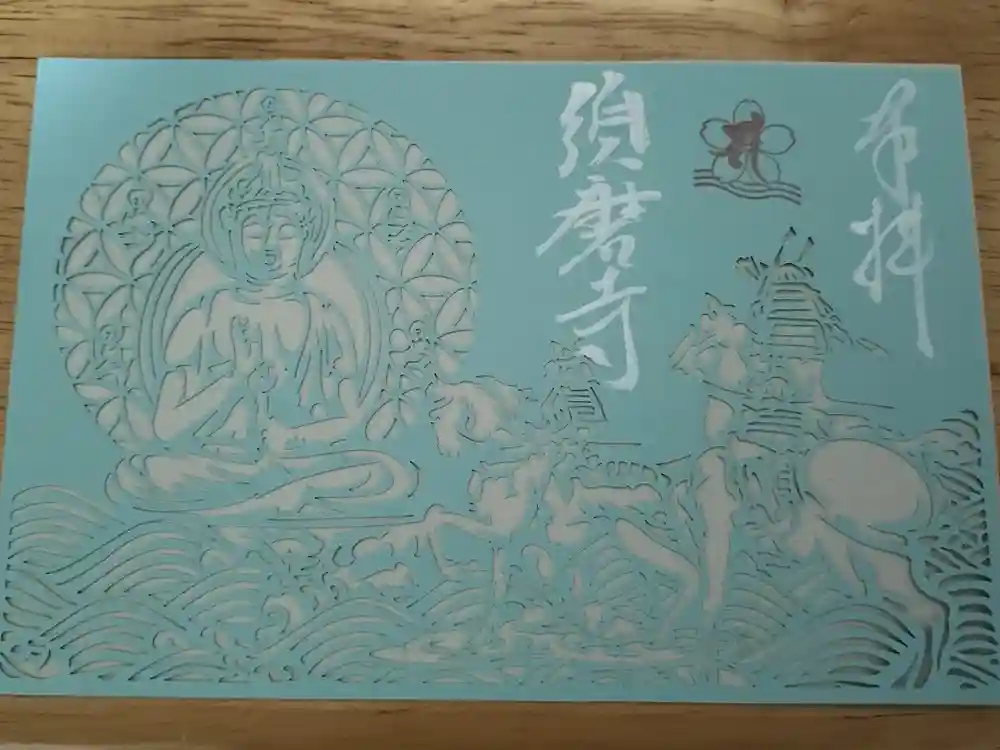 奉拝
須磨寺